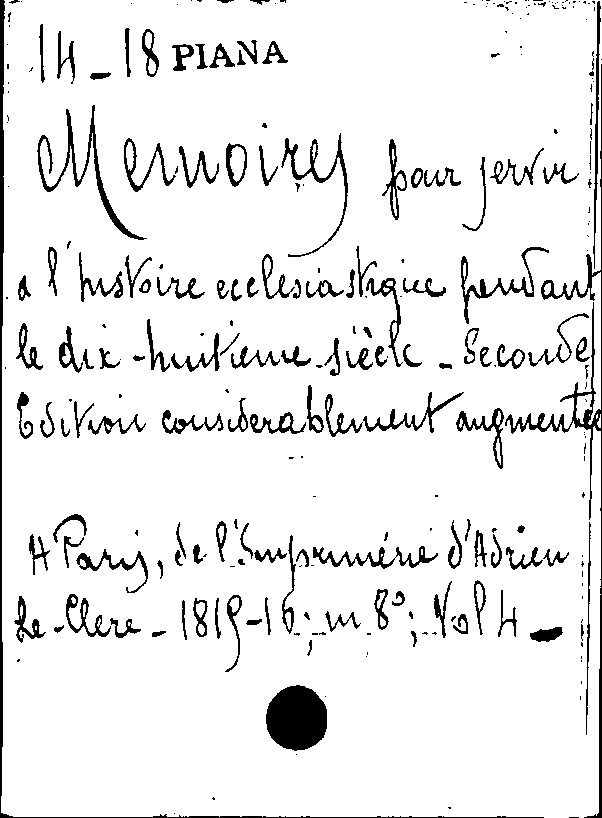 14-18 PIANA
Memoires pour servir
a l'histoire ecclesiastique pendant
le dix-huitieme siècle - Seconde
Edition considerablement augmentée
A Paris, de l'Imprimérie d'Adrien
Le-Clere - 1815-16; in 8°; Vol 4 -